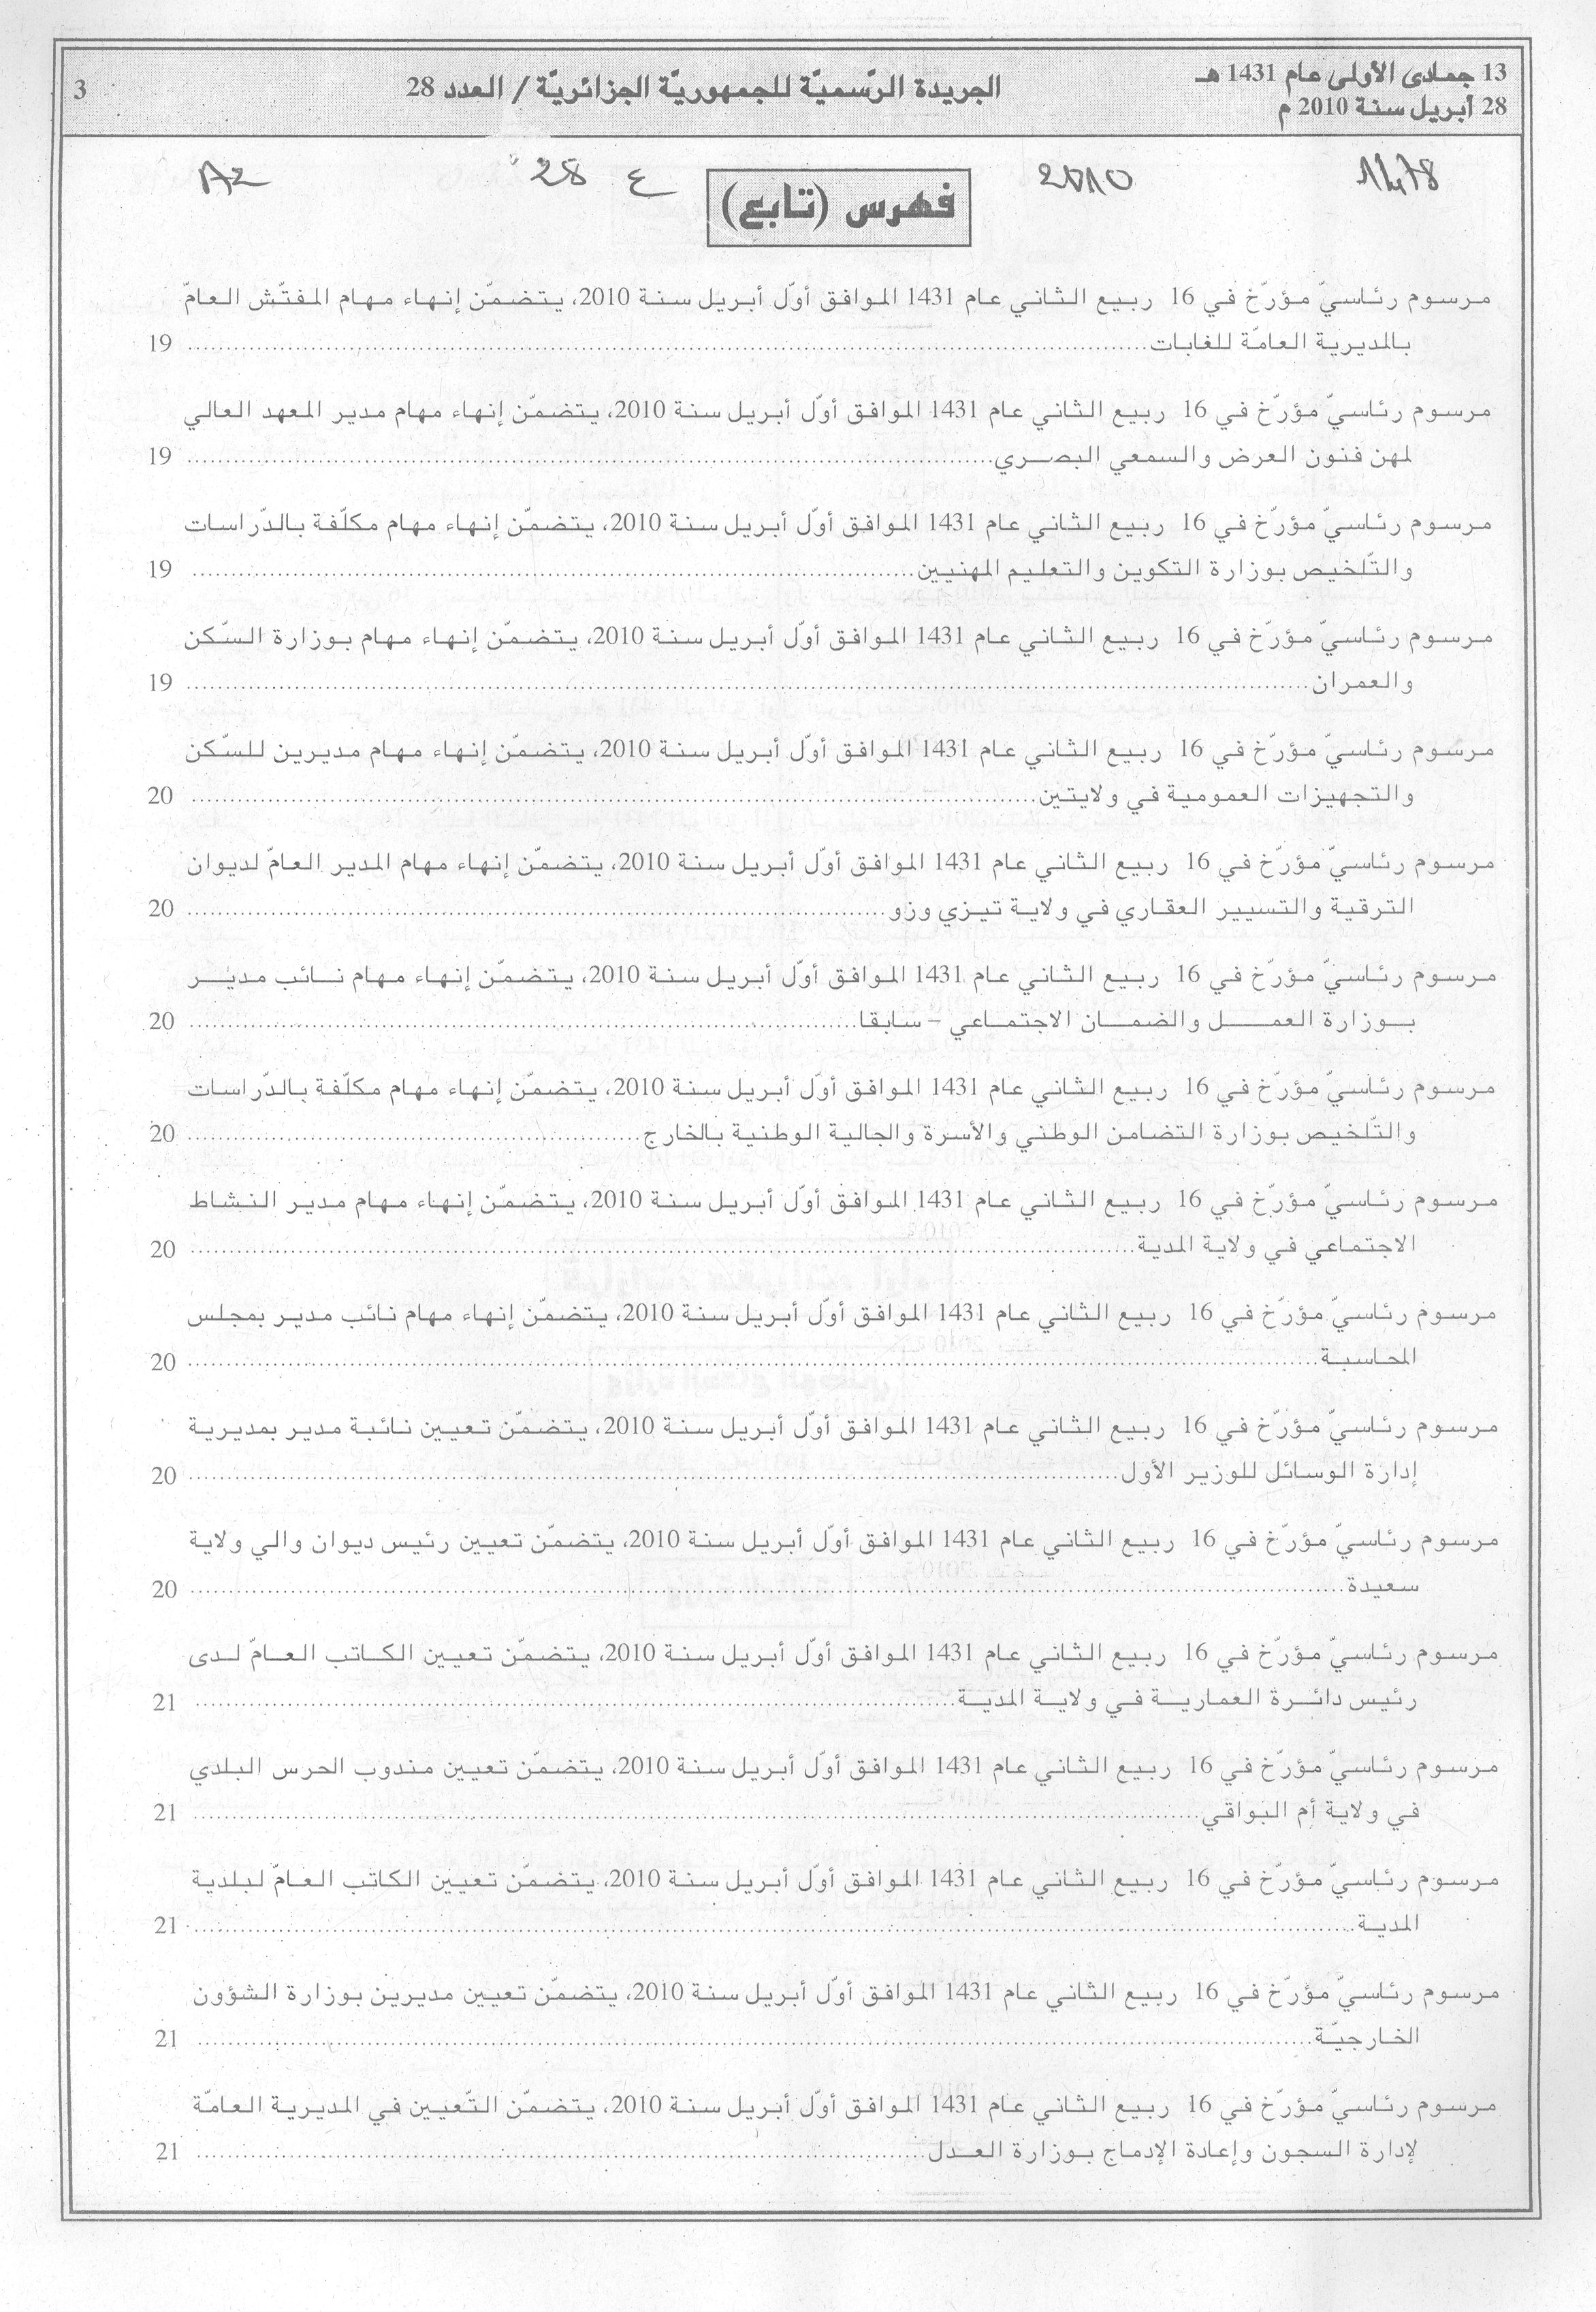 13 جمادى الأولى عام 1431 هـ
28 أبريل سنة 2010 م
الجريدة الرّسميّة للجمهوريّة الجزائريّة / العدد 28
3
2010
ع 28
A2
فهرس (تابع)
مرسوم رئاسيّ مؤرّخ في 16 ربيع الثاني عام 1431 الموافق أوّل أبريل سنة 2010، يتضمّن إنهاء مهام المفتّش العامّ
بالمديرية العامّة للغابات 19
مرسوم رئاسيّ مؤرّخ في 16 ربيع الثاني عام 1431 الموافق أوّل أبريل سنة 2010، يتضمّن إنهاء مهام مدير المعهد العالي
لمهن فنون العرض والسمعي البصري 19
مرسوم رئاسيّ مؤرّخ في 16 ربيع الثاني عام 1431 الموافق أوّل أبريل سنة 2010، يتضمّن إنهاء مهام مكلّفة بالدّراسات
والتّلخيص بوزارة التكوين والتعليم المهنيين 19
مرسوم رئاسيّ مؤرّخ في 16 ربيع الثاني عام 1431 الموافق أوّل أبريل سنة 2010، يتضمّن إنهاء مهام بوزارة السّكن
والعمران 19
مرسوم رئاسيّ مؤرّخ في 16 ربيع الثاني عام 1431 الموافق أوّل أبريل سنة 2010، يتضمّن إنهاء مهام مديرين للسّكن
والتجهيزات العمومية في ولايتين 20
مرسوم رئاسيّ مؤرّخ في 16 ربيع الثاني عام 1431 الموافق أوّل أبريل سنة 2010، يتضمّن إنهاء مهام المدير العامّ لديوان
الترقية والتسيير العقاري في ولاية تيزي وزو 20
مرسوم رئاسيّ مؤرّخ في 16 ربيع الثاني عام 1431 الموافق أوّل أبريل سنة 2010، يتضمّن إنهاء مهام نائب مدير
بوزارة العمل والضمان الاجتماعي – سابقا 20
مرسوم رئاسيّ مؤرّخ في 16 ربيع الثاني عام 1431 الموافق أوّل أبريل سنة 2010، يتضمّن إنهاء مهام مكلّفة بالدّراسات
والتّلخيص بوزارة التضامن الوطني والأسرة والجالية الوطنية بالخارج 20
مرسوم رئاسيّ مؤرّخ في 16 ربيع الثاني عام 1431 الموافق أوّل أبريل سنة 2010، يتضمّن إنهاء مهام مدير النشاط
الاجتماعي في ولاية المدية 20
مرسوم رئاسيّ مؤرّخ في 16 ربيع الثاني عام 1431 الموافق أوّل أبريل سنة 2010، يتضمّن إنهاء مهام نائب مدير بمجلس
المحاسبة 20
مرسوم رئاسيّ مؤرّخ في 16 ربيع الثاني عام 1431 الموافق أوّل أبريل سنة 2010، يتضمّن تعيين نائبة مدير بمديرية
إدارة الوسائل للوزير الأول 20
مرسوم رئاسيّ مؤرّخ في 16 ربيع الثاني عام 1431 الموافق أوّل أبريل سنة 2010، يتضمّن تعيين رئيس ديوان والي ولاية
سعيدة 20
مرسوم رئاسيّ مؤرّخ في 16 ربيع الثاني عام 1431 الموافق أوّل أبريل سنة 2010، يتضمّن تعيين الكاتب العامّ لدى
رئيس دائرة العمارية في ولاية المدية 21
مرسوم رئاسيّ مؤرّخ في 16 ربيع الثاني عام 1431 الموافق أوّل أبريل سنة 2010، يتضمّن تعيين مندوب الحرس البلدي
في ولاية أم البواقي 21
مرسوم رئاسيّ مؤرّخ في 16 ربيع الثاني عام 1431 الموافق أوّل أبريل سنة 2010، يتضمّن تعيين الكاتب العامّ لبلدية
المدية 21
مرسوم رئاسيّ مؤرّخ في 16 ربيع الثاني عام 1431 الموافق أوّل أبريل سنة 2010، يتضمّن تعيين مديرين بوزارة الشؤون
الخارجيّة 21
مرسوم رئاسيّ مؤرّخ في 16 ربيع الثاني عام 1431 الموافق أوّل أبريل سنة 2010، يتضمّن التّعيين في المديرية العامّة
لإدارة السجون وإعادة الإدماج بوزارة العدل 21